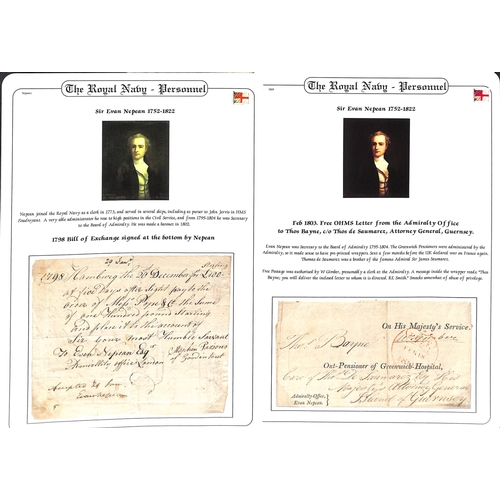 The Royal Navy - Personnel
Sir Evan Nepean 1752-1822
Nepean joined the Royal Navy as a clerk in 1773, and served in several ships, including as purser to John Jervis in HMS
Foudroyant. A very able administrator he rose to high positions in the Civil Service, and from 1795-1804 he was Secretary
to the Board of Admiralty. He was made a baronet in 1802.
1798 Bill of Exchange signed at the bottom by Nepean
1798 Hamburg the 26 December for £100
at five days after sight pay to the
order of Messrs Pyne & Co the Sum
of one Hundred pound Starling
and place it to the account of
Sir your most Humble Servant
To Evan Nepean Esqr
Admiralty office London
Accepted
Evan Nepean
The Royal Navy - Personnel
Sir Evan Nepean 1752-1822
Feb 1803. Free OHMS Letter from the Admiralty Office
to Thos Bayne, c/o Thos de Saumarez, Attorney General, Guernsey.
Evan Nepean was Secretary of the Admiralty 1795-1804. The Greenwich Pensioners were administered by the
Admiralty, so it made sense to have pre-printed wrappers. Sent a few months before the UK declared war on France again.
Thomas de Saumarez was a brother of the famous Admiral Sir James Saumarez.
Free Postage was authorised by W Gimber, presumably a clerk in the Admiralty. A message inside the wrapper reads "Thos
Bayne, you will deliver the inclosed letter to whom it is directed.
On His Majesty's Service.
Thos. Bayne
Out-Pensioner of Greenwich-Hospital,
care of Thos De Saumarez Esq
Majesty's Attorney General
Island of Guernsey
Admiralty-Office,
Evan Nepean.